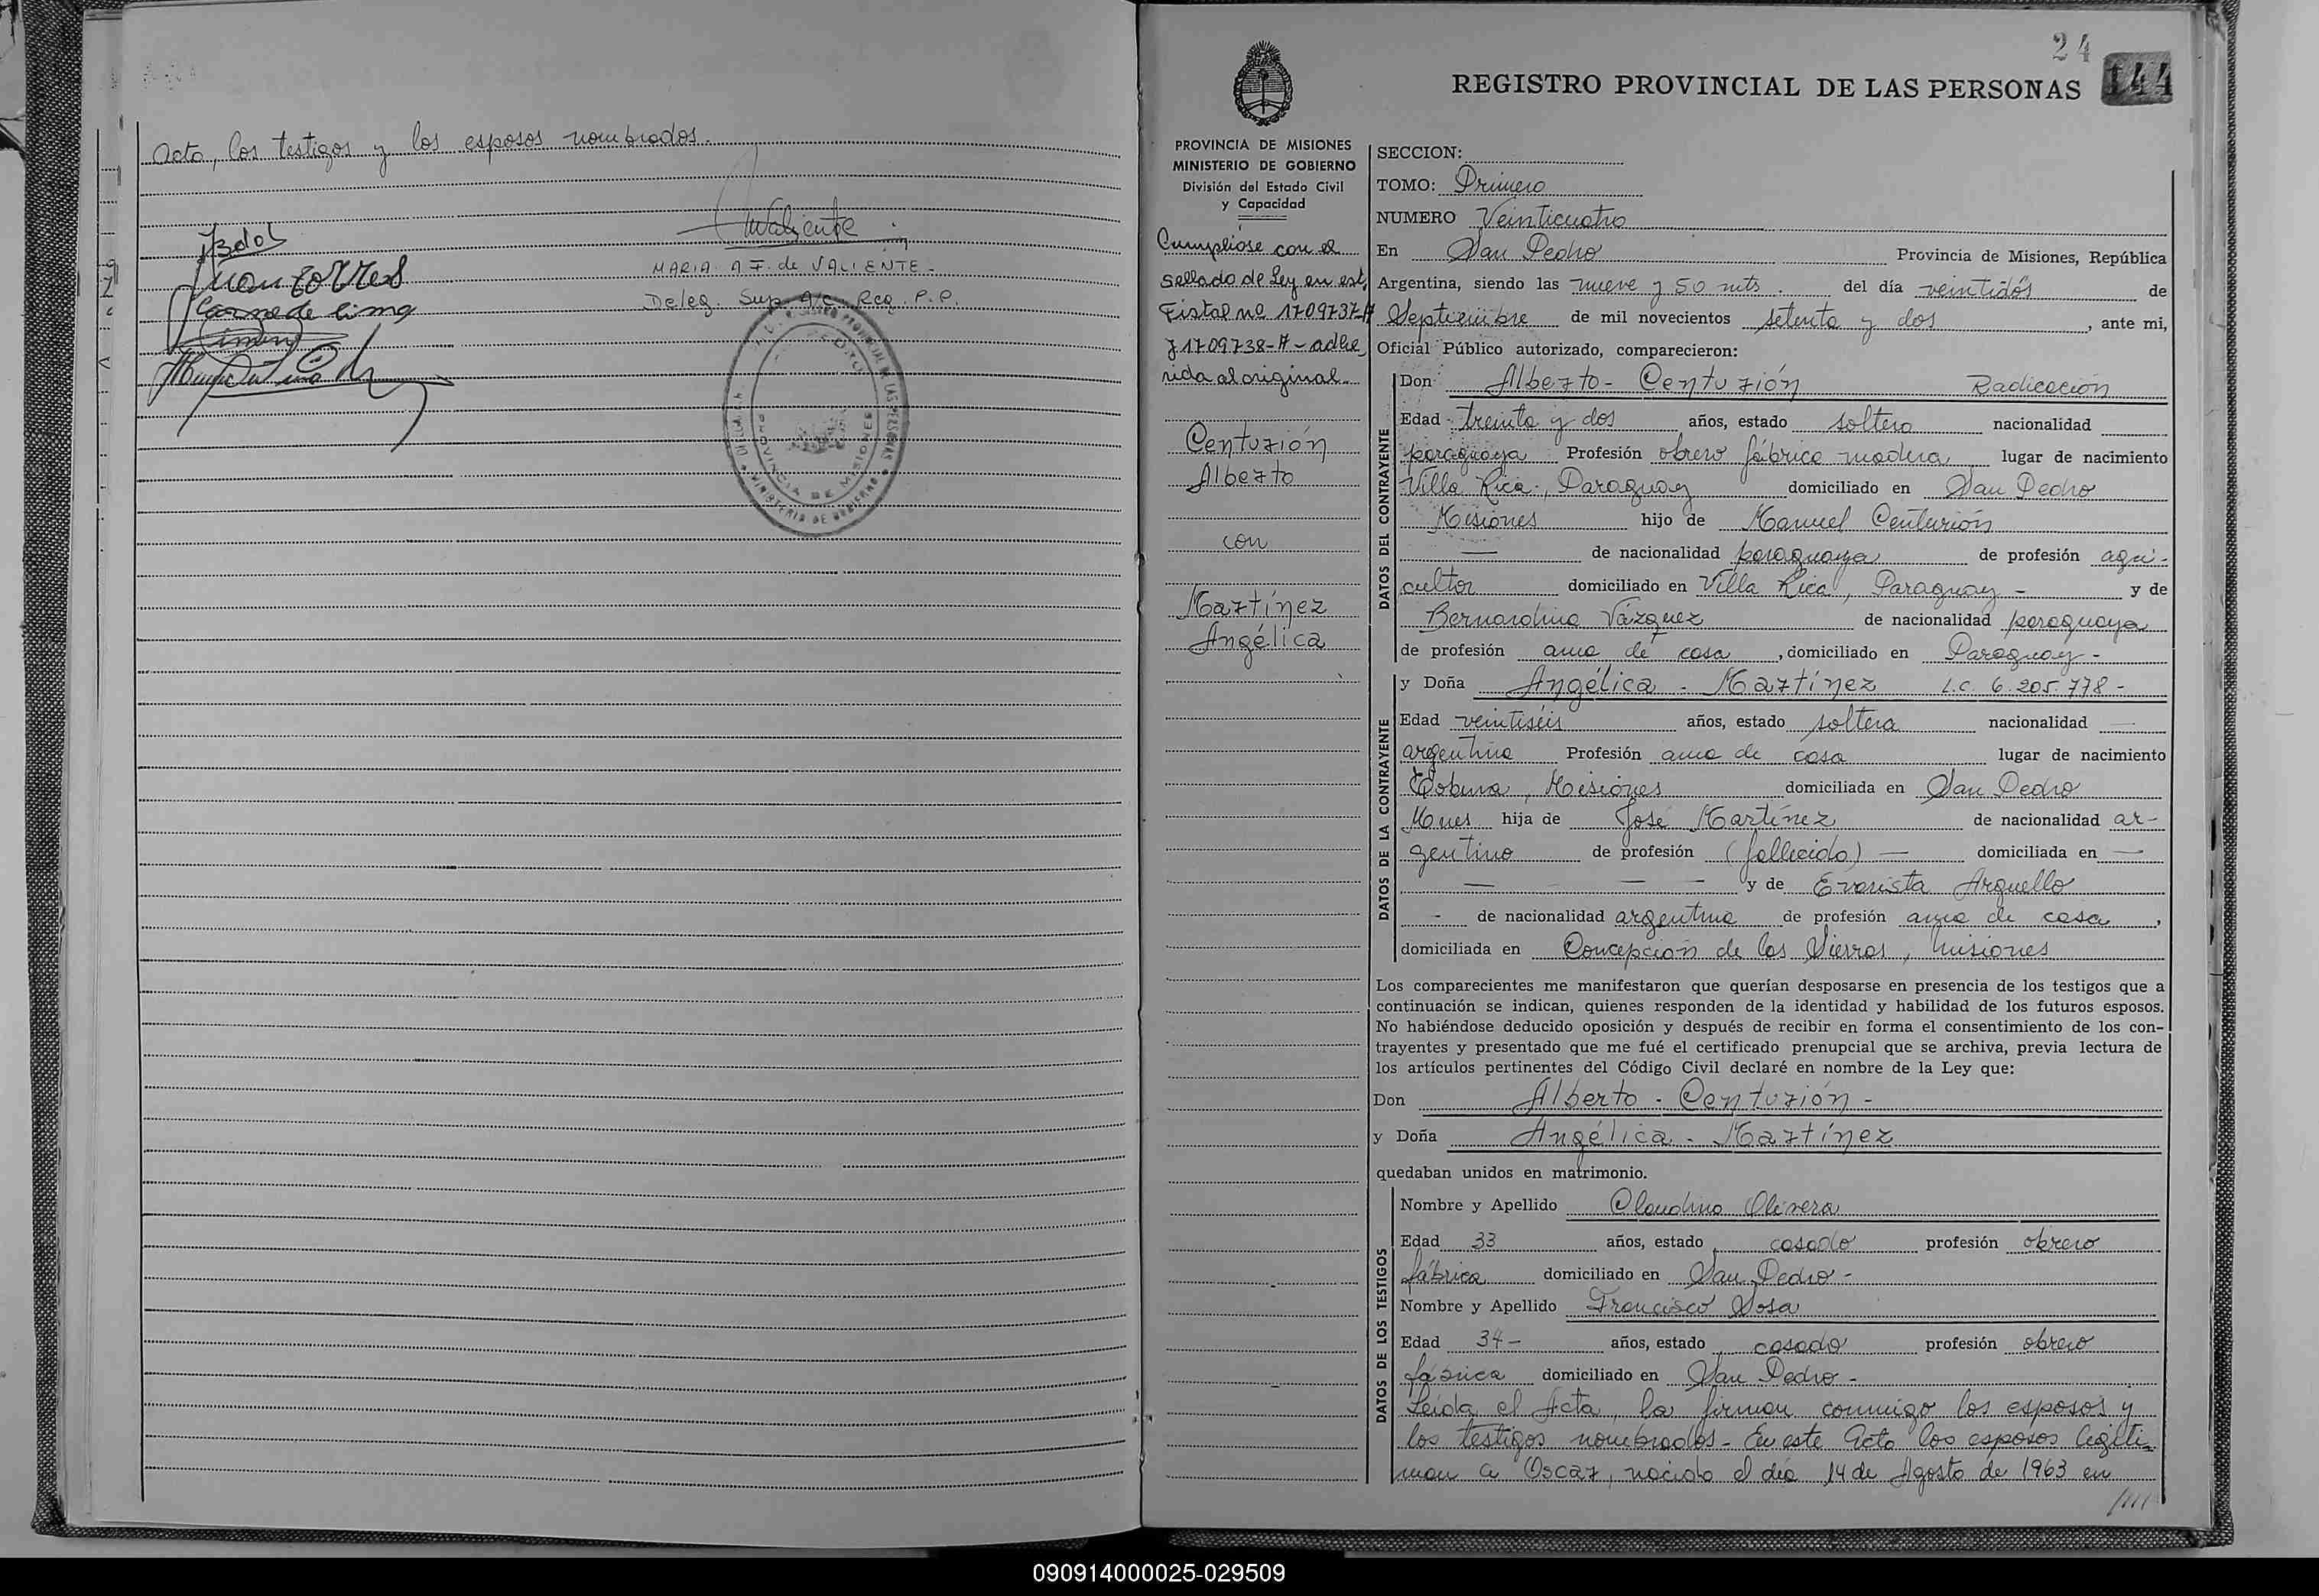 Acto, los testigos y los esposos nombrados.
Juan Torres
de Lima
MValiente
MARIA A F. de VALIENTE -
Deleg. Sup. a/c Reg. P.P.
PROVINCIA DE MISIONES
MINISTERIO DE GOBIERNO
24
144
REGISTRO PROVINCIAL DE LAS PERSONAS
PROVINCIA DE MISIONES
MINISTERIO DE GOBIERNO
División del Estado Civil
y Capacidad
Cumplióse con el
sellado de Ley en est.
Fistal no 1709737-A
y 1709738-A - adhe
rida al original.
Centurión
Alberto
con
Martínez
Angélica
SECCION:
TOMO: Primero
NUMERO Veinticuatro
En San Pedro Provincia de Misiones, República
Argentina, siendo las nueve y 50 mts. del día veintidós de
Septiembre de mil novecientos setenta y dos, ante mi,
Oficial Público autorizado, comparecieron:
DATOS DEL CONTRAYENTE
Don Alberto - Centurión Radicación
Edad treinta y dos años, estado soltero nacionalidad
paraguaya Profesión obrero fábrica madera lugar de nacimiento
Villa Rica, Paraguay domiciliado en San Pedro
Misiones hijo de Manuel Centurión
— de nacionalidad paraguaya de profesión agri-
cultor domiciliado en Villa Rica, Paraguay - y de
Bernardina Vázquez de nacionalidad paraguaya
de profesión ama de casa, domiciliado en Paraguay -
DATOS DE LA CONTRAYENTE
y Doña Angélica - Martínez L.C. 6.205.778 -
Edad veintiséis años, estado soltera nacionalidad —
argentina Profesión ama de casa lugar de nacimiento
Misiones domiciliada en San Pedro
Mnes hija de José Martínez de nacionalidad ar-
gentino de profesión (fallecido) — domiciliada en —
— — — y de Evarista Arguello
- de nacionalidad argentina de profesión ama de casa,
domiciliada en Concepción de las Sierras, Misiones
Los comparecientes me manifestaron que querían desposarse en presencia de los testigos que a
continuación se indican, quienes responden de la identidad y habilidad de los futuros esposos.
No habiéndose deducido oposición y después de recibir en forma el consentimiento de los con-
trayentes y presentado que me fué el certificado prenupcial que se archiva, previa lectura de
los artículos pertinentes del Código Civil declaré en nombre de la Ley que:
Don Alberto - Centurión -
y Doña Angélica - Martínez
quedaban unidos en matrimonio.
DATOS DE LOS TESTIGOS
Nombre y Apellido Claudino Olivera
Edad 33 años, estado casado profesión obrero
fábrica domiciliado en San Pedro -
Nombre y Apellido Francisco Sosa
Edad 34 - años, estado casado profesión obrero
fábrica domiciliado en San Pedro -
Leída el Acta, la firman conmigo los esposos y
los testigos nombrados - En este Acto los esposos legiti-
man a Oscar, nacido el día 14 de Agosto de 1963 en
090914000025-029509